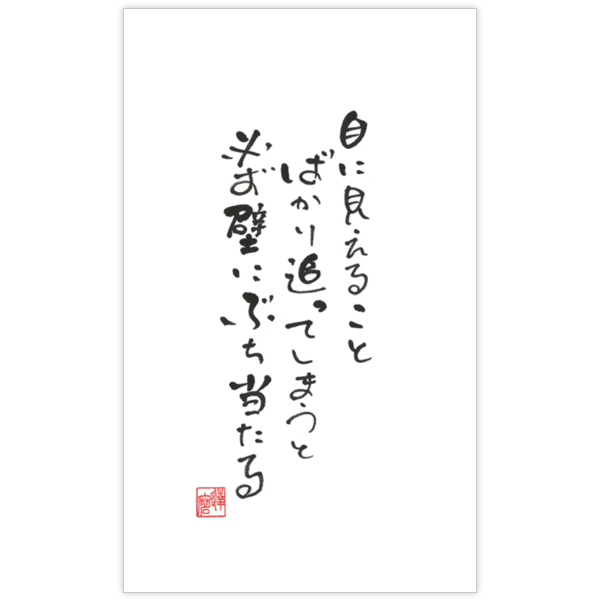 目に見えること
ばかり追ってしまうと
必ず壁にぶち当たる
達磨